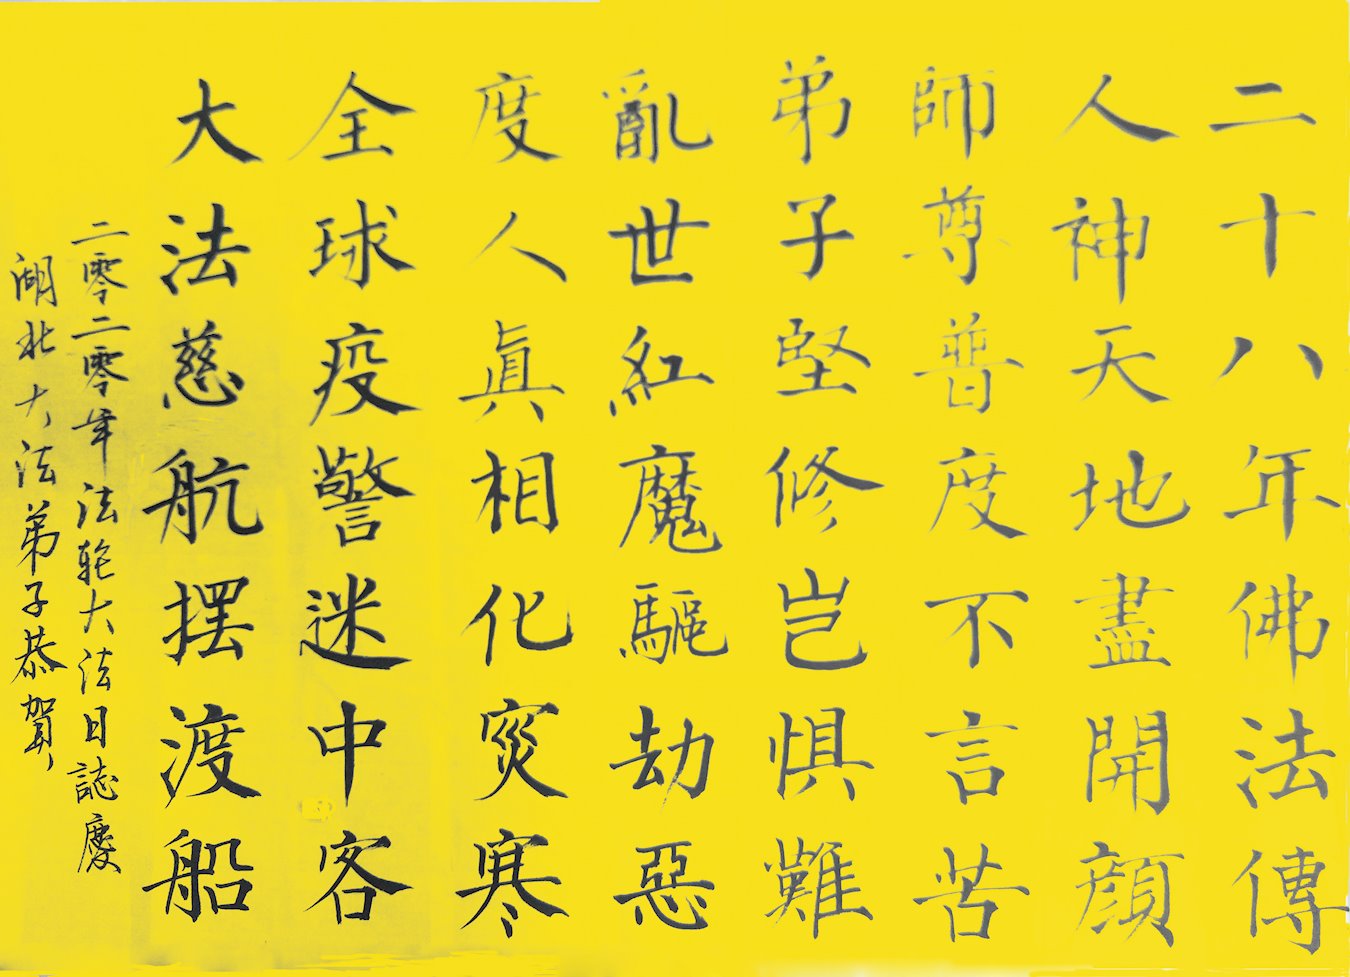 二十八年佛法傳
人神天地盡開顏
師尊普度不言苦
弟子堅修岂惧難
亂世紅魔驅劫惡
度人眞相化寒
全球疫警迷中客
大法慈航摆渡船
二零二零年法轮大法日誌慶
湖北大法弟子恭賀